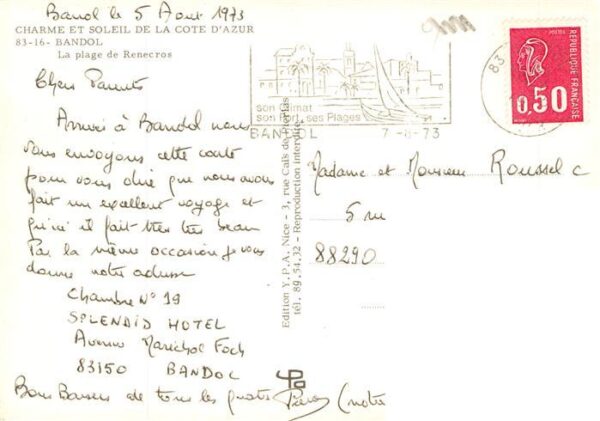 Bandol le 5 Aout 1973
CHARME ET SOLEIL DE LA COTE D'AZUR
83-16- BANDOL
La plage de Renecros
Chers Parents
Arrivés à Bandol nous
vous envoyons cette carte
pour vous dire que nous avons
fait un excellent voyage et
qu'ici il fait très très beau
Par la même occasion je vous
donne notre adresse
Chambre N° 19
SPLENDID HOTEL
Avenue Marechol Foch
83150 BANDOL
Bons Baisers de tous les quatre Pierre (notre
Edition Y.P.A. Nice - 3, rue Cais de Pierlas
tél. 89.54.32 - Reproduction interdite
son Climat
son Port, ses Plages
BANDOL 7-8-73
83
POSTES
REPUBLIQUE FRANÇAISE
0,50
Madame et Monsieur Roussel c
5 rue
88290